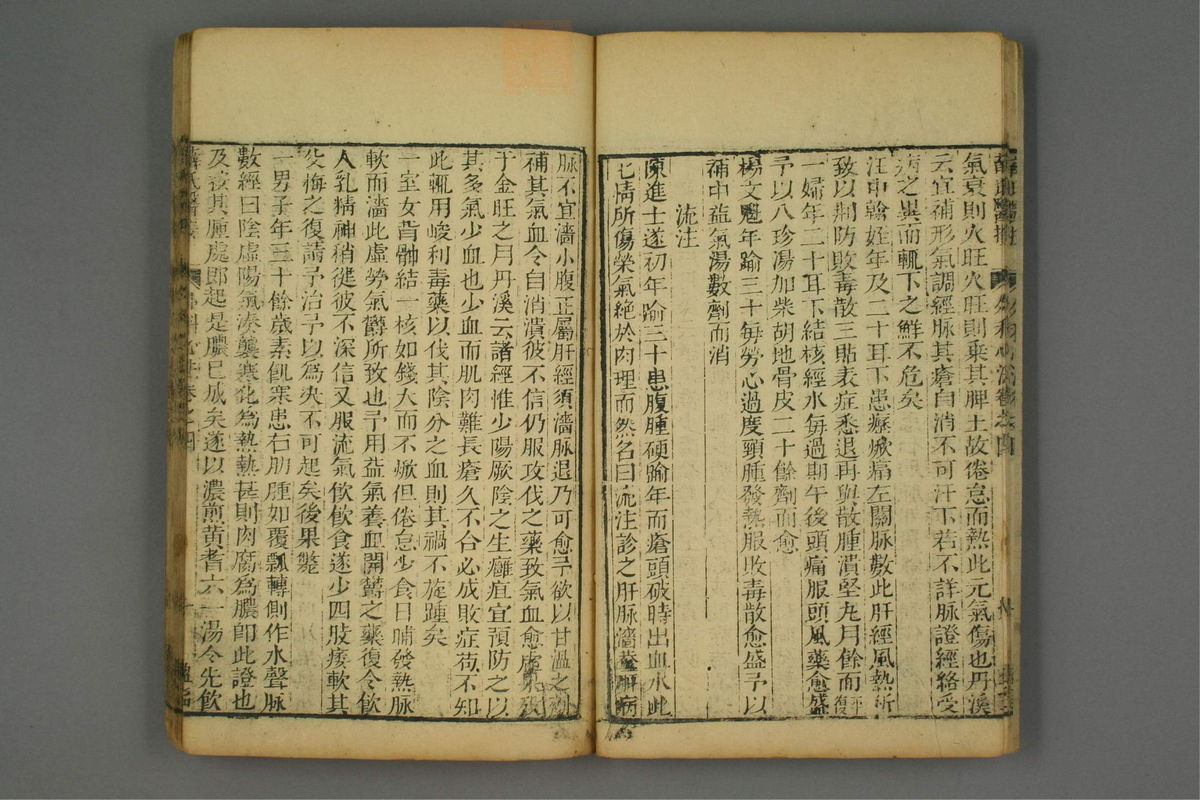 氣衰則火旺火旺則乘其脾土故倦怠而熱此元氣傷也丹溪
云宜補形氣調經脉其瘡自消不可汗下若不詳脉證經絡受
病之異而輒下之鮮不危矣
汪中翰姪年及二十耳下患瘰瘶痛左關脉數此肝經風熱所
致以荆防敗毒散三貼表症悉退再與散腫潰堅丸月餘而平復
一婦年二十耳下結核經水每過期午後頭痛服頭風藥愈盛
予以八珍湯加柴胡地骨皮二十餘劑而愈
楊文魁年踰三十每勞心過度頸腫發熱服敗毒散愈盛予以
補中益氣湯數劑而消
流注
陳進士遂初年踰三十患腹腫硬踰年而瘡頭破時出血水此
七情所傷榮氣絶於肉理而然名曰流注診之肝脉濇盖病
脉不宜濇小腹正屬肝經須濇脉退乃可愈予欲以甘温之劑
補其氣血令自消潰彼不信仍服攻伐之藥致氣血愈虚果歿
于金旺之月丹溪云諸經惟少陽厥陰之生癰疽宜預防之以
其多氣少血也少血而肌肉難長瘡久不合必成敗症苟不知
此輒用峻利毒藥以伐其陰分之血則其禍不旋踵矣
一室女背髀結一核如錢大而不瘶但倦怠少食日晡發熱脉
軟而濇此虚勞氣鬱所致也予用益氣養血開鬱之藥復令飲
人乳精神稍徤彼不深信又服流氣飲飲食遂少四肢痿軟其
父悔之復請予治予以爲决不可起矣後果斃
一男子年三十餘歳素飢寒患右肋腫如覆瓢轉則作水聲脉
數經曰陰虚陽氣湊襲寒化為熱熱甚則肉腐為膿卽此證也
及按其腫處卽起是膿已成矣遂以濃煎黄耆六一湯令先飲